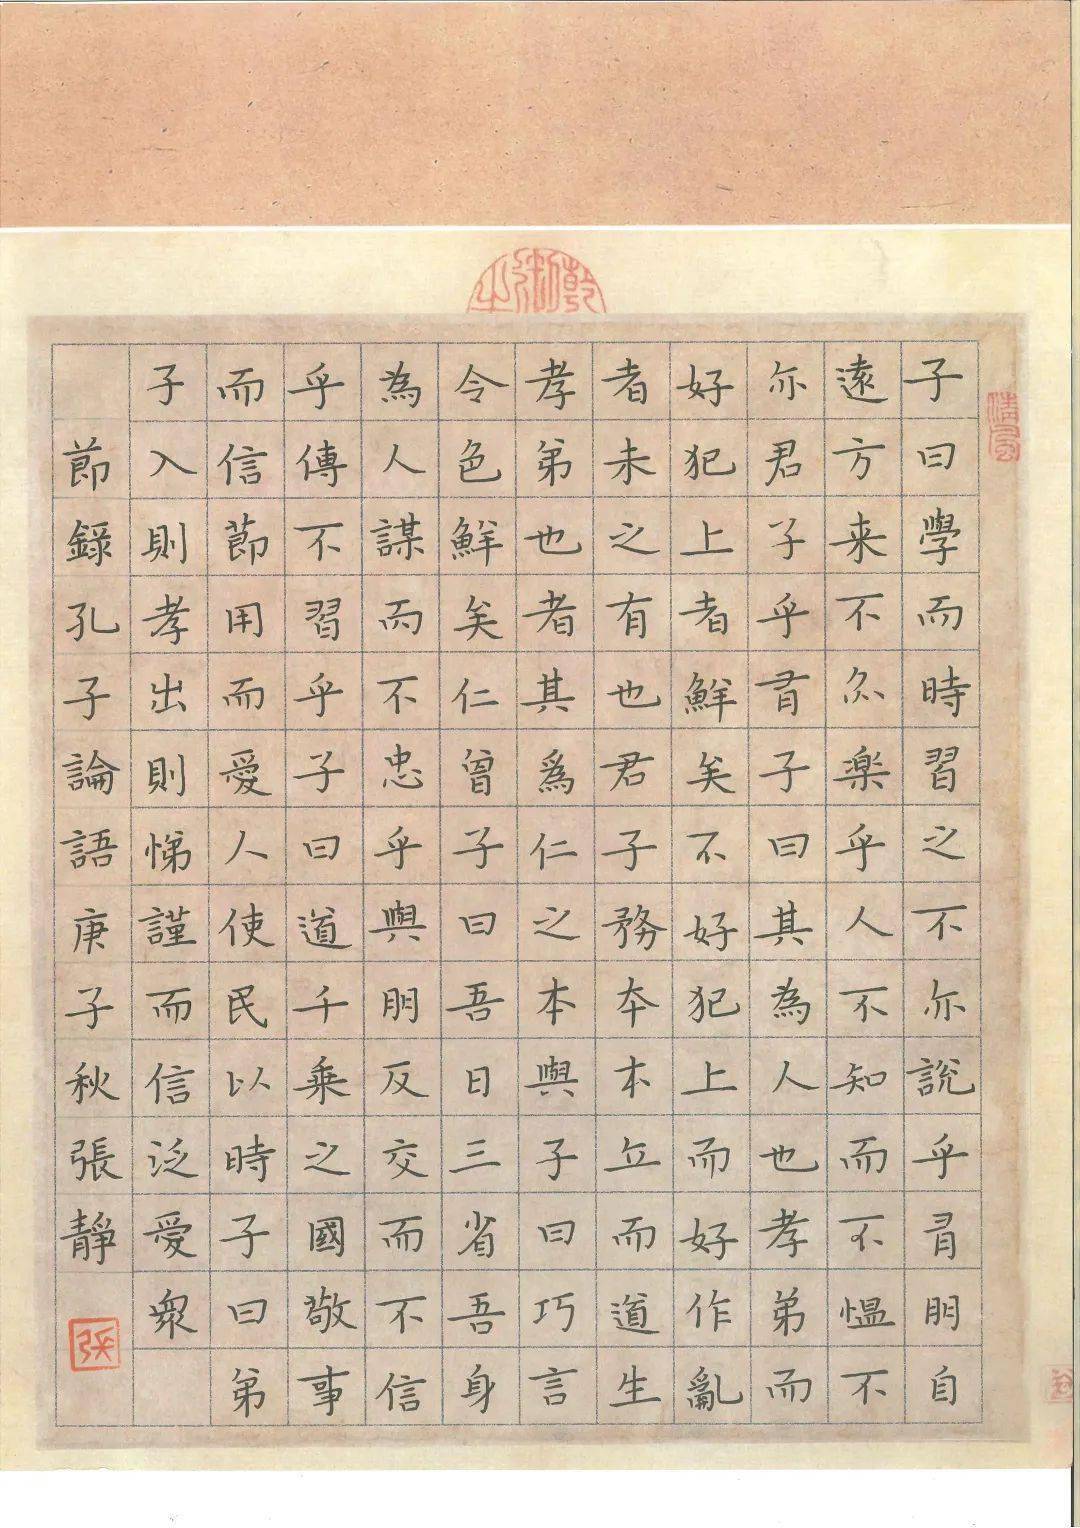 子曰學而時習之不亦說乎有朋自
遠方来不亦楽乎人不知而不愠不
亦君子乎有子曰其為人也孝弟而
好犯上者鮮矣不好犯上而好作亂
者未之有也君子務本本立而道生
孝弟也者其爲仁之本與子曰巧言
令色鮮矣仁曾子曰吾日三省吾身
為人謀而不忠乎與朋友交而不信
乎傳不習乎子曰道千乘之國敬事
而信節用而愛人使民以時子曰弟
子入則孝出則悌謹而信泛愛眾
節錄孔子論語庚子秋張靜
張